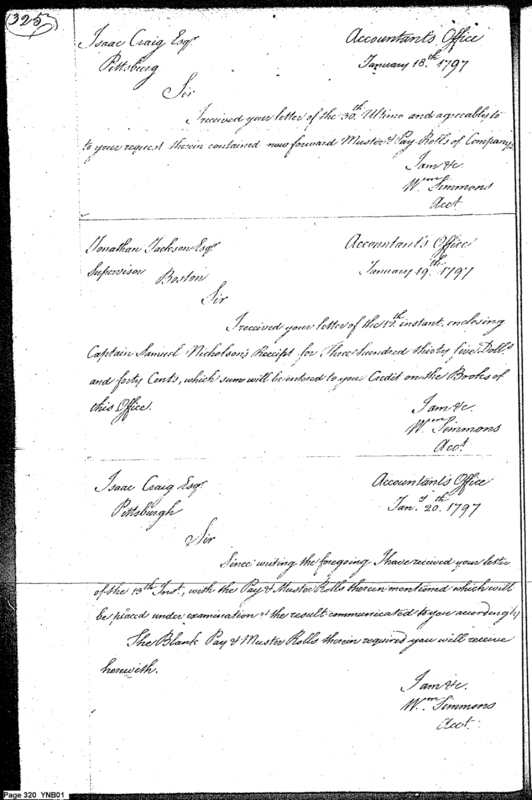 325
Isaac Craig Esqr.
Accountant's Office
Pittsburg
January 18.th 1797
Sir
I received your letter of the 30.th Ultimo and agreeably to
to your request therein contained now forward Muster & Pay Rolls of Company.
I am &c.
Wm. Simmons
Acct
Jonathan Jackson Esqr.
Accountant's Office
Supervisor Boston
January 19.th 1797
Sir
I received your letter of the 12.th instant, enclosing
Captain Samuel Nicholson's Receipt for Three hundred thirty five Doll.s
and forty Cents, which sum will be entered to your Credit on the Books of
this Office.
I am &c.
Wm. Simmons
Acct.
Isaac Craig Esqr.
Accountant's Office
Pittsburgh
Jan.y 20.th 1797
Sir
Since writing the foregoing I have received your letter
of the 13th Inst., with the Pay & Muster Rolls therein mentioned which will
be placed under examination & the result communicated to you accordingly
The Blank Pay & Muster Rolls therein required you will receive
herewith.
I am &c.
Wm. Simmons
Acct.
Page 320 YNB01